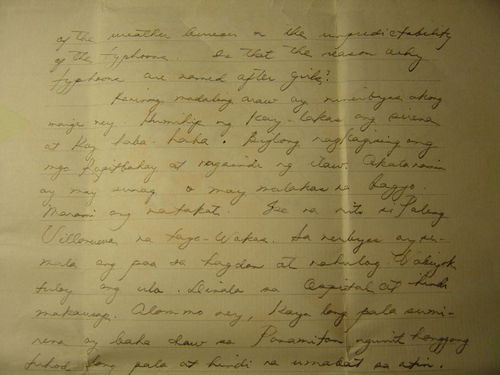 of the weather bureau or the unpredictability
of the typhoons. Is that the reason why
typhoons are named after girls?
Kaninong madaling araw ay ninerbiyos akong
maige ney. Humihip ng kay-lakas ang sirena
at kay haba-haba. Biglang nagkagising ang
mga kapitbahay at nagsindi ng ilaw. Akala namin
ay may sunog o may malakas na bagyo.
Marami ang natakot. Isa na rito si Paling
Villanueva na taga-Wakas. Sa nerbiyos ay su-
mala ang paa sa hagdan at nahulog.
tuloy ang ulo. Dinala sa ospital at hindi
makausap. Alam mo ney, kaya lang pala sumi-
rena ay baha daw sa Panamitan ngunit hanggang
tuhod lang pala at hindi na umabot sa atin.